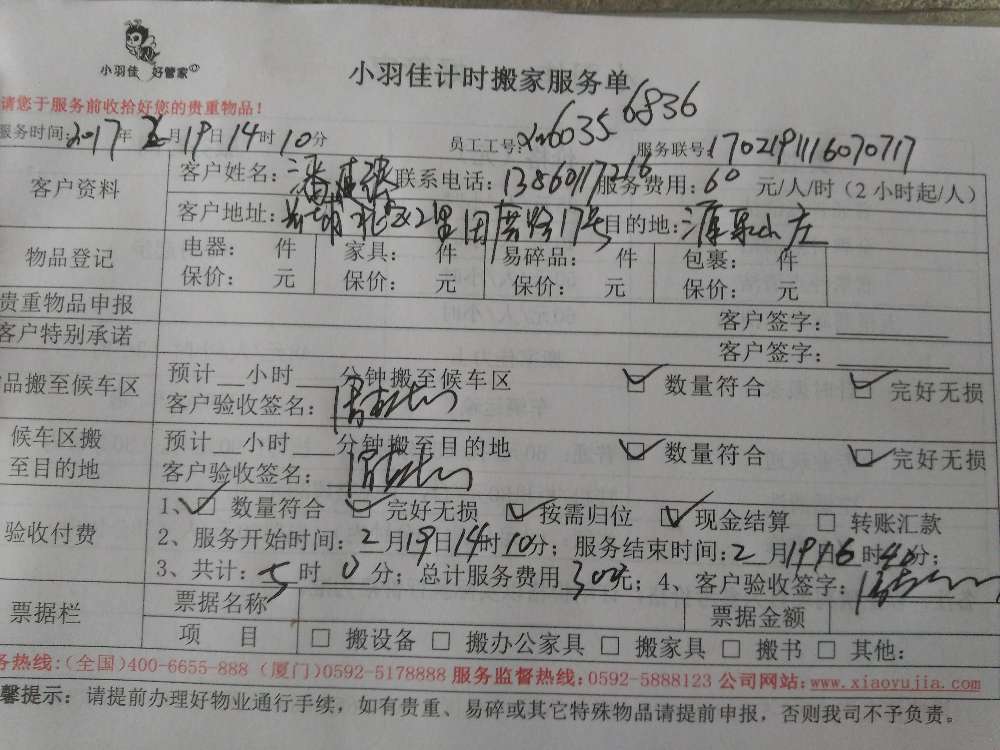 小羽佳 好管家
小羽佳计时搬家服务单
请您于服务前收拾好您的贵重物品！
服务时间：2017年2月19日14时10分 员工工号： 6836 服务联号：1702191116070717
客户资料 客户姓名： 联系电话： 服务费用：60元/人/时（2小时起/人）
客户地址： 17号 目的地：
物品登记 电器： 件 家具： 件 易碎品： 件 包裹： 件
保价： 元 保价： 元 保价： 元 保价： 元
贵重物品申报 客户签字：
客户特别承诺 客户签字：
品搬至候车区 预计__小时____分钟搬至候车区 数量符合 完好无损
客户验收签名：
候车区搬 预计__小时____分钟搬至目的地 数量符合 完好无损
至目的地 客户验收签名：
验收付费 1、 数量符合 完好无损 按需归位 现金结算 □ 转账汇款
2、服务开始时间：2月19日14时10分；服务结束时间：2月19日16时40分；
3、共计：5时0分；总计服务费用300元；4、客户验收签字：
票据栏 票据名称 票据金额
项 目 □ 搬设备 □ 搬办公家具 □ 搬家具 □ 搬书 □ 其他：
务热线:(全国)400-6655-888 (厦门)0592-5178888 服务监督热线:0592-5888123 公司网站:www.xiaoyujia.com
馨提示：请提前办理好物业通行手续，如有贵重、易碎或其它特殊物品请提前申报，否则我司不予负责。